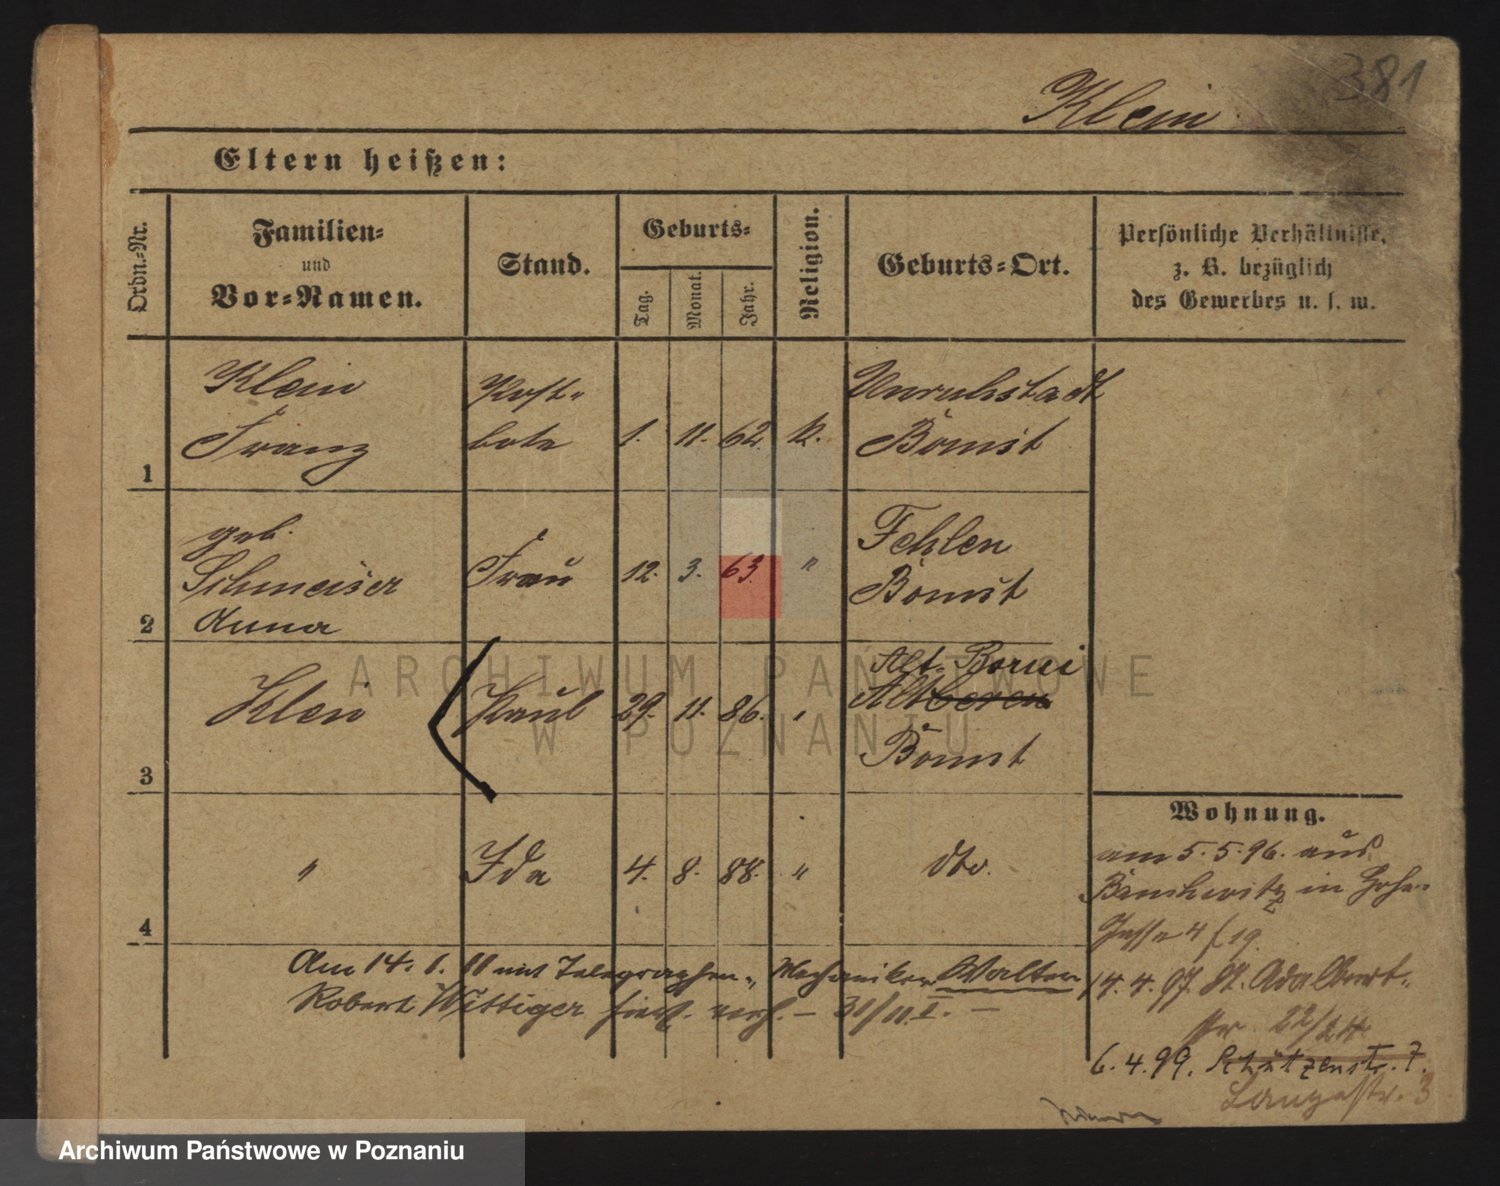 381
Klein
Eltern heißen:
Ordn.-Nr.
Familien-
und
Vor-Namen.
Stand.
Geburts-
Tag.
Monat.
Jahr.
Religion.
Geburts-Ort.
Persönliche Verhältnisse,
z. B. bezüglich
des Gewerbes u. s. w.
1
Klein
Franz
Post-
bote
1. 11. 62. k.
Unruhstadt
Bomst
2
geb.
Schmeiser
Anna
Frau
12. 3. 63. "
Fehlen
Bomst
3
Klein
Paul
29. 11. 86. "
Alt-Borui
Bomst
4
"
Ida
4. 8. 88. "
dto.
Wohnung.
am 5.5.96. aus
in Hohe-
Gasse 4
14. 4. 97. St. Adalbert-
str. 22/24
6. 4. 99. Schützenstr. 7.
Langestr. 3
Am 14. mit Telegraphen- Mechaniker Walter
Robert Wittiger hier
ARCHIWUM PAŃSTWOWE
W POZNANIU
Archiwum Państwowe w Poznaniu